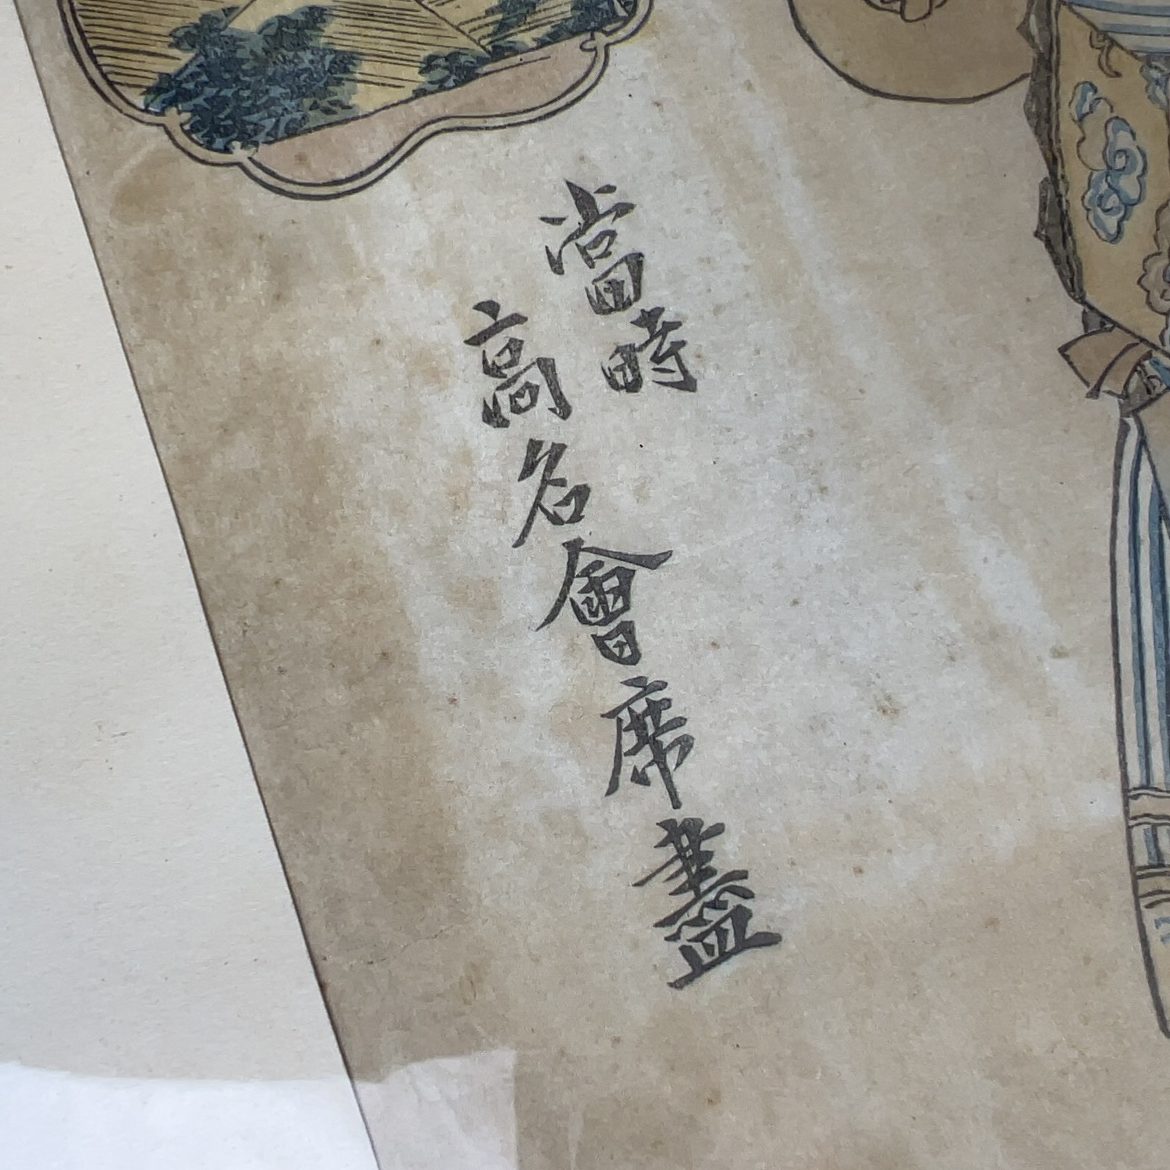 當時
高名會席盡